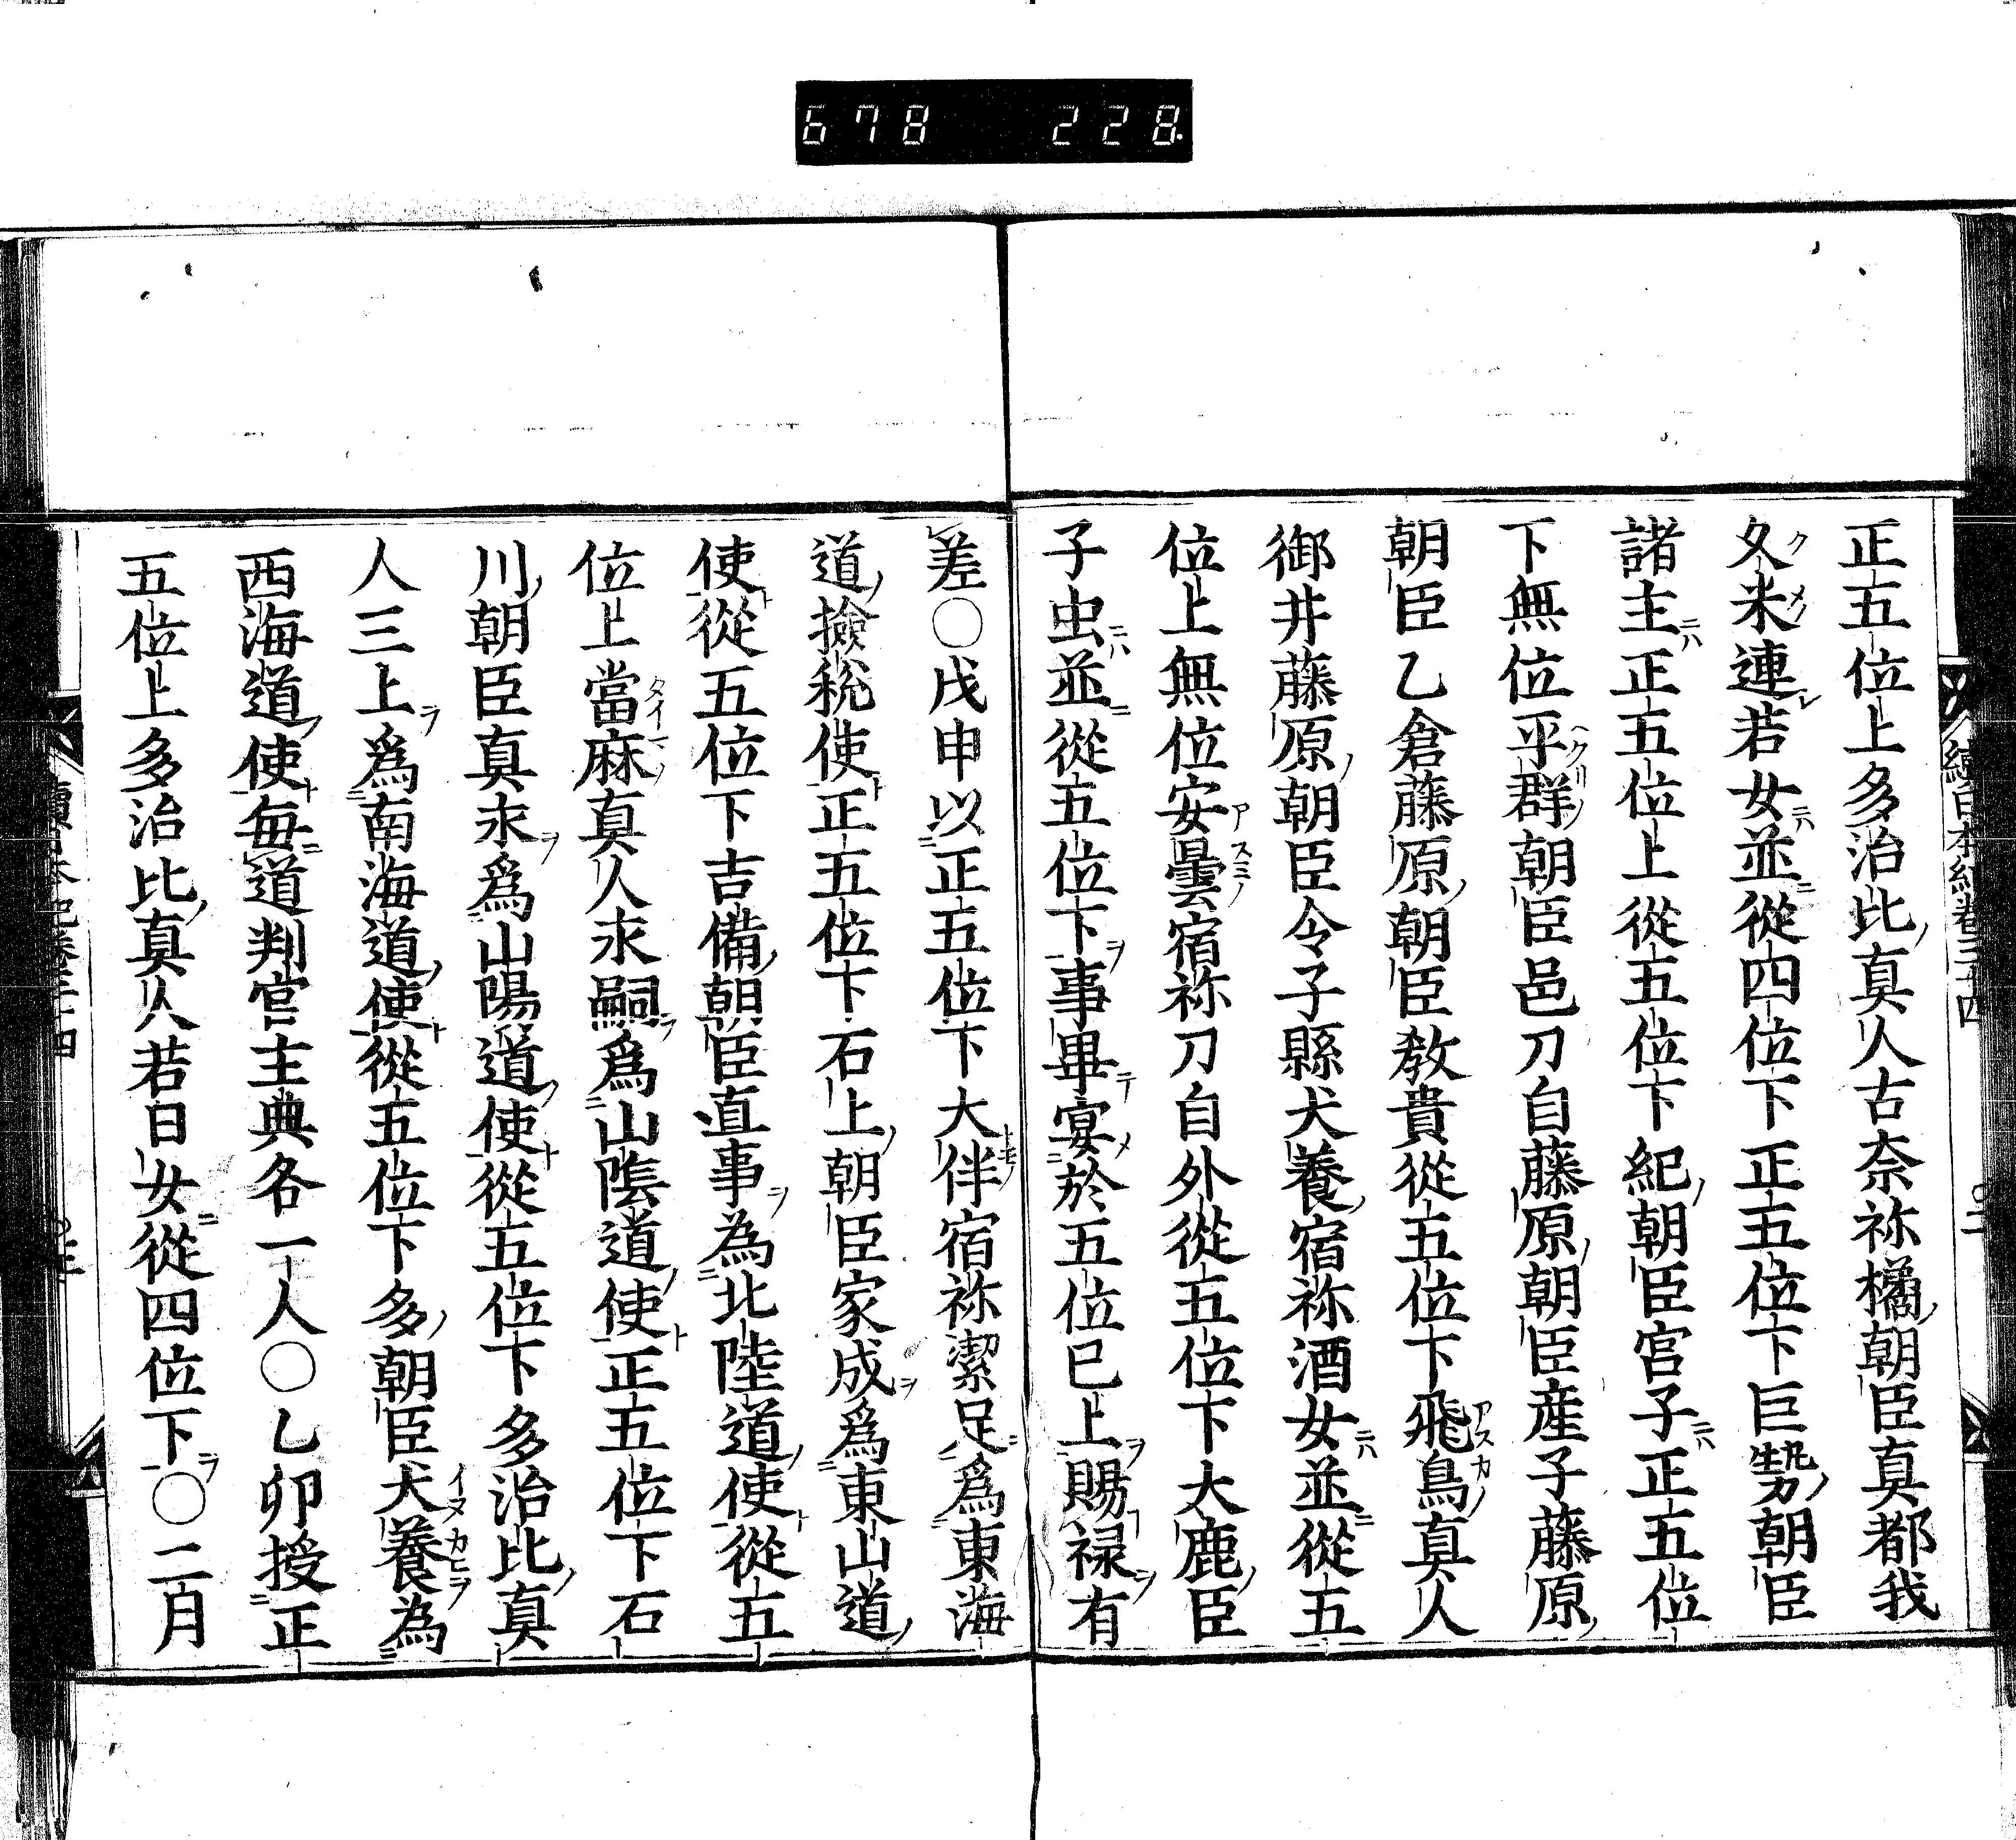 678 228
正五位上多治比真人古奈祢橘朝臣真都我
久米連若女並從四位下正五位下巨勢朝臣
諸主正五位上從五位下紀朝臣宮子正五位
下無位平群朝臣邑刀自藤原朝臣産子藤原
朝臣乙倉藤原朝臣教貴從五位下飛鳥真人
御井藤原朝臣令子縣犬養宿祢酒女並從五
位上無位安曇宿祢刀自外從五位下大鹿臣
子虫並從五位下事畢宴於五位已上賜禄有
差○戊申以正五位下大伴宿祢潔足爲東海
道撿税使正五位下石上朝臣家成爲東山道
使從五位下吉備朝臣直事為北陸道使從五
位上當麻真人永嗣爲山陰道使正五位下石
川朝臣真永爲山陽道使從五位下多治比真
人三上爲南海道使從五位下多朝臣犬養為
西海道使毎道判官主典各一人○乙卯授正
五位上多治比真人若日女從四位下○二月